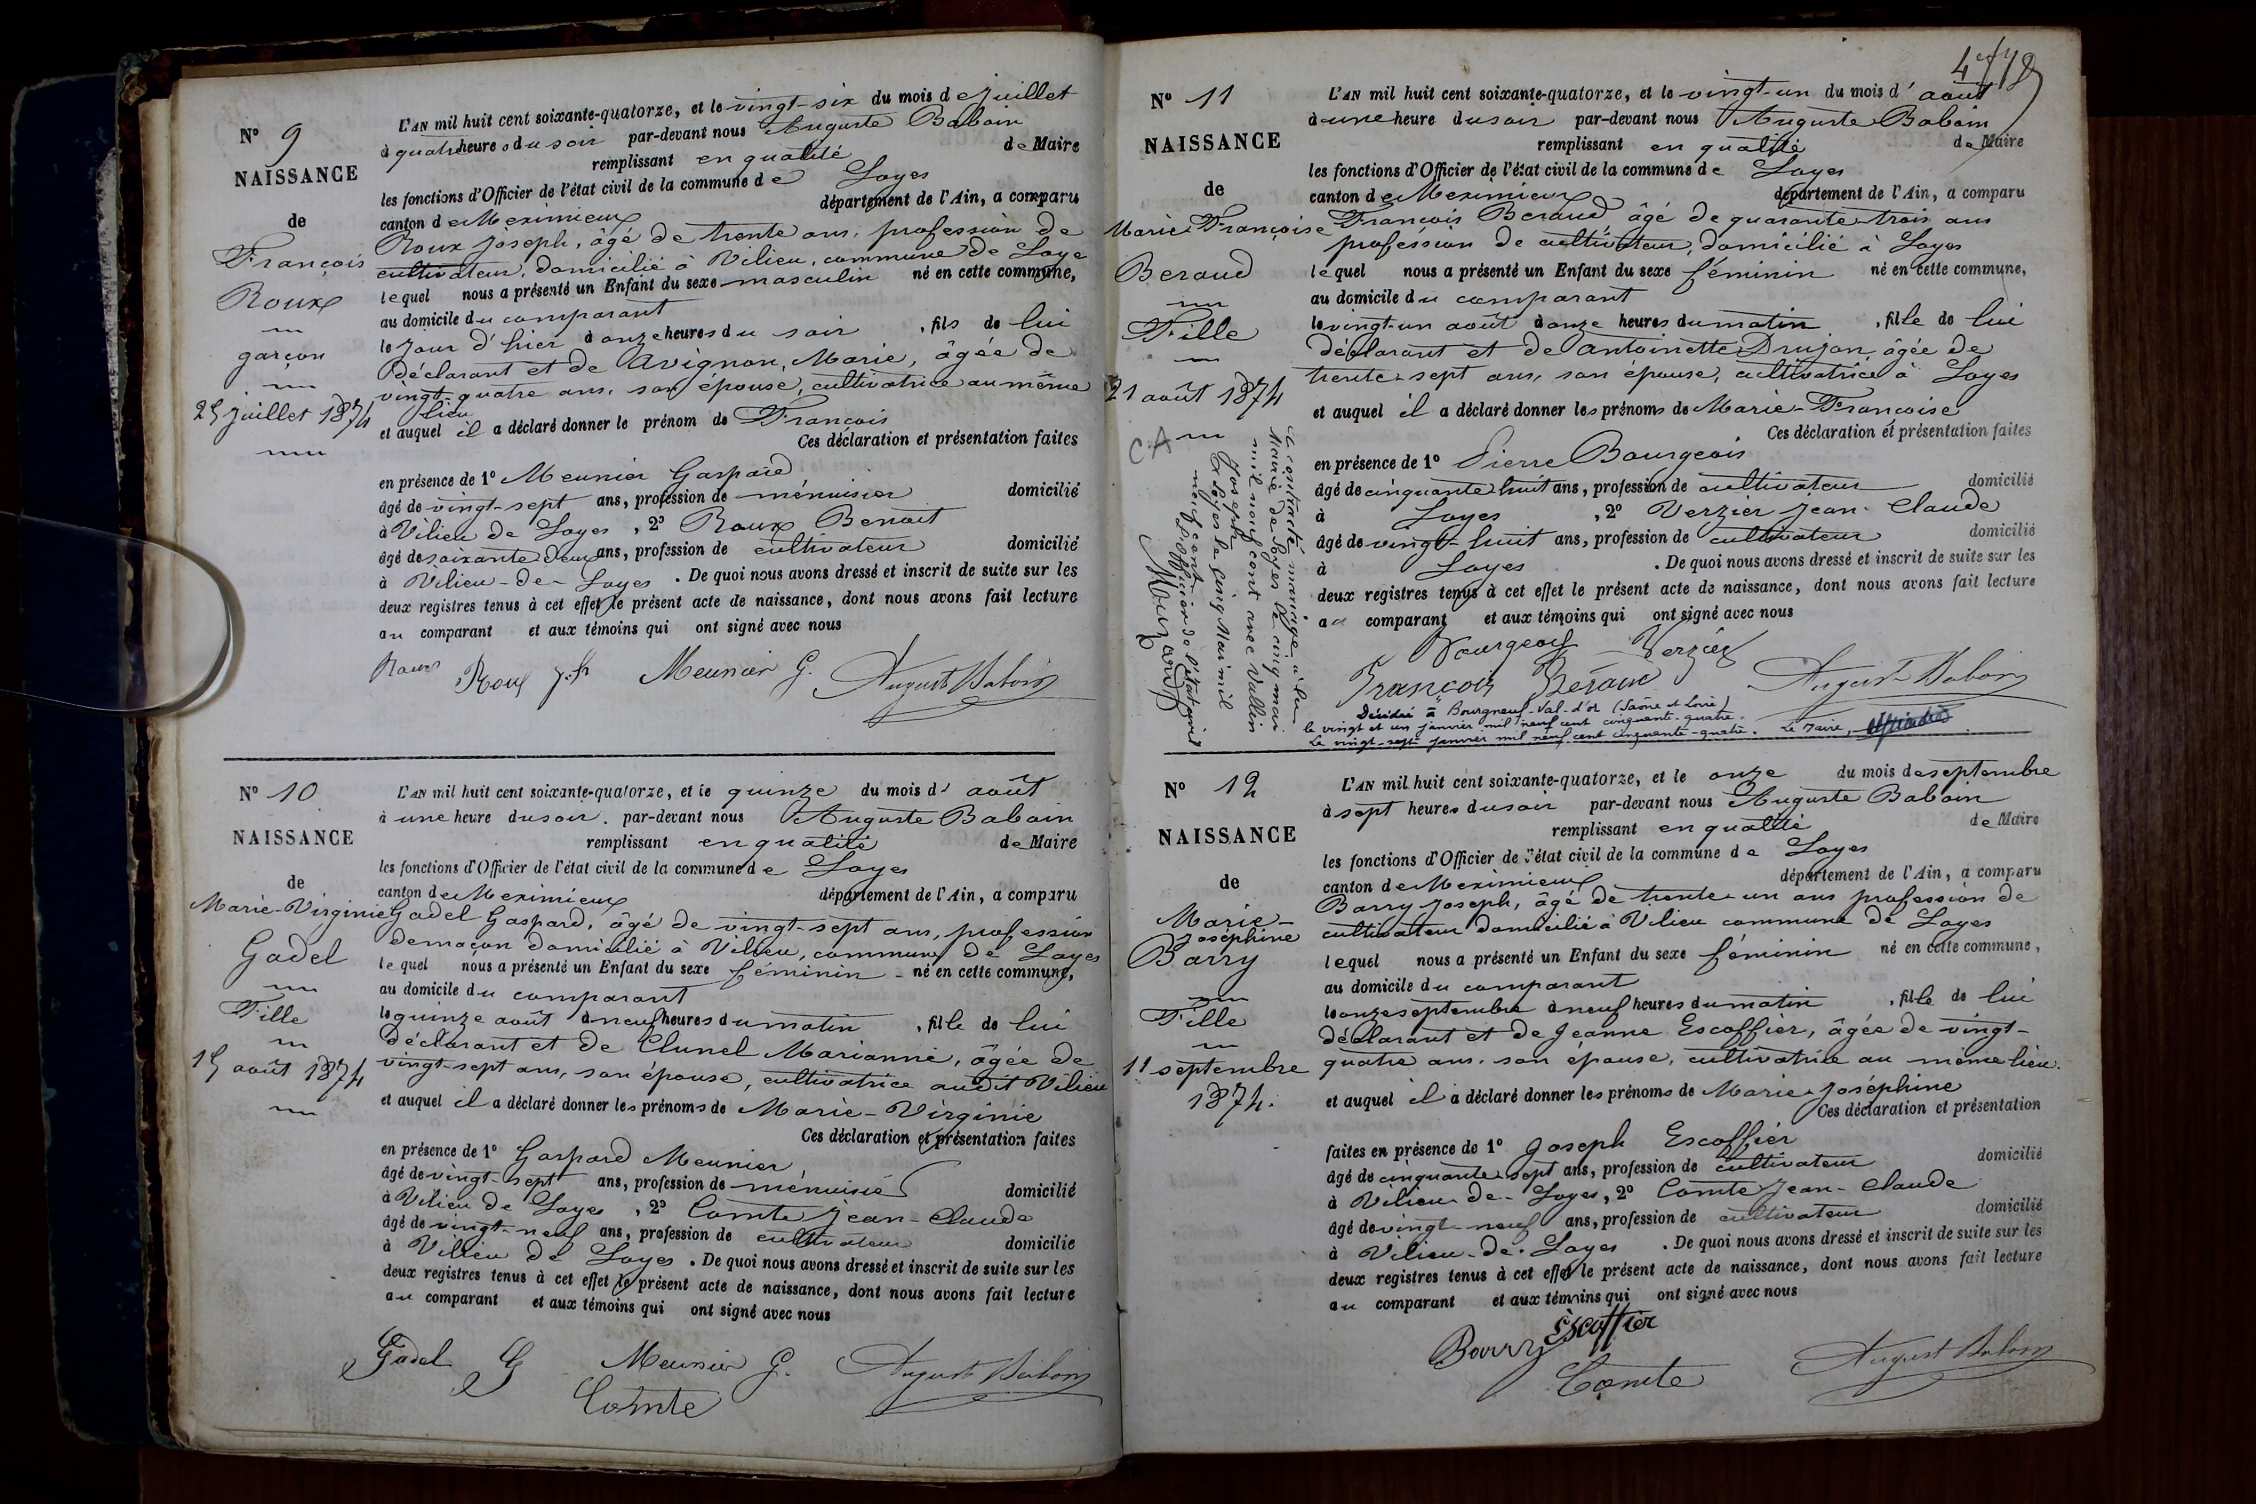 N° 9
NAISSANCE
de
François
Roux
garçon
25 juillet 1874
L'AN mil huit cent soixante-quatorze, et le vingt-six du mois de juillet
à quatre heures du soir par-devant nous Auguste Baboin
remplissant en qualité de Maire
les fonctions d'Officier de l'état civil de la commune de Loyes
canton de Meximieux département de l'Ain, a comparu
Roux Joseph, âgé de trente ans, profession de
cultivateur, domicilié à Vilieu, commune de Loyes
lequel nous a présenté un Enfant du sexe masculin né en cette commune,
au domicile du comparant
le jour d'hier à onze heures du soir, fils de lui
déclarant et de Avignon, Marie, âgée de
vingt-quatre ans, son épouse, cultivatrice au même
lieu
et auquel il a déclaré donner le prénom de François
Ces déclaration et présentation faites
en présence de 1° Meunier Gaspard
âgé de vingt-sept ans, profession de ménuisier domicilié
à Vilieu de Loyes, 2° Roux Benoit
âgé de soixante deux ans, profession de cultivateur domicilié
à Vilieu-de-Loyes. De quoi nous avons dressé et inscrit de suite sur les
deux registres tenus à cet effet le présent acte de naissance, dont nous avons fait lecture
au comparant et aux témoins qui ont signé avec nous
Roux Roux Jph Meunier G. August Baboin
N° 10
NAISSANCE
de
Marie-Virginie
Gadel
Fille
15 août 1874
L'AN mil huit cent soixante-quatorze, et le quinze du mois d'août
à une heure du soir. par-devant nous Auguste Baboin
remplissant en qualité de Maire
les fonctions d'Officier de l'état civil de la commune de Loyes
canton de Meximieux département de l'Ain, a comparu
Gadel Gaspard, âgé de vingt-sept ans, profession
de maçon domicilié à Vilieu, commune de Loyes
lequel nous a présenté un Enfant du sexe féminin né en cette commune,
au domicile du comparant
le quinze août à neuf heures du matin, fille de lui
déclarant et de Clunel Marianne, âgée de
vingt-sept ans, son épouse, cultivatrice audit Vilieu
et auquel il a déclaré donner les prénoms de Marie-Virginie
Ces déclaration et présentation faites
en présence de 1° Gaspard Meunier,
âgé de vingt-sept ans, profession de ménuisier domicilié
à Vilieu de Loyes, 2° Comte Jean-Claude
âgé de vingt-neuf ans, profession de cultivateur domicilié
à Vilieu de Loyes. De quoi nous avons dressé et inscrit de suite sur les
deux registres tenus à cet effet le présent acte de naissance, dont nous avons fait lecture
au comparant et aux témoins qui ont signé avec nous
Gadel G Meunier G. August Baboin
Comte
N° 11
NAISSANCE
de
Marie-Françoise
Beraud
Fille
21 août 1874
C.A
a contracté mariage à la
Mairie de Loyes le cinq mai
mil neuf cent avec Vallin
Joseph
Loyes le cinq Mai mil
neuf cent
L'officier de l'état civil
L'AN mil huit cent soixante-quatorze, et le vingt-un du mois d'août
à une heure du soir par-devant nous Auguste Baboin
remplissant en qualité de Maire
les fonctions d'Officier de l'état civil de la commune de Loyes
canton de Meximieux département de l'Ain, a comparu
François Beraud âgé de quarante-trois ans
profession de cultivateur, domicilié à Loyes
lequel nous a présenté un Enfant du sexe féminin né en cette commune,
au domicile du comparant
le vingt-un août à onze heures du matin, fille de lui
déclarant et de Antoinette Drujon, âgée de
trente-sept ans, son épouse, cultivatrice à Loyes
et auquel il a déclaré donner les prénoms de Marie-Françoise
Ces déclaration et présentation faites
en présence de 1° Pierre Bourgeois
âgé de cinquante huit ans, profession de cultivateur domicilié
à Loyes, 2° Verzier Jean-Claude
âgé de vingt-huit ans, profession de cultivateur domicilié
à Loyes. De quoi nous avons dressé et inscrit de suite sur les
deux registres tenus à cet effet le présent acte de naissance, dont nous avons fait lecture
au comparant et aux témoins qui ont signé avec nous
Bourgeois Verzier
François Béraud August Baboin
Décédée à Bourgneuf-Val-d'or (Saône et Loire)
le vingt et un janvier mil neuf cent cinquante-quatre.
Le vingt-sept janvier mil neuf cent cinquante-quatre. Le Maire,
N° 12
NAISSANCE
de
Marie-
Joséphine
Barry
Fille
11 septembre
1874.
L'AN mil huit cent soixante-quatorze, et le onze du mois de septembre
à sept heures du soir par-devant nous Auguste Baboin
remplissant en qualité de Maire
les fonctions d'Officier de l'état civil de la commune de Loyes
canton de Meximieux département de l'Ain, a comparu
Barry Joseph, âgé de trente-un ans profession de
cultivateur domicilié à Vilieu commune de Loyes
lequel nous a présenté un Enfant du sexe féminin né en cette commune,
au domicile du comparant
le onze septembre à neuf heures du matin, fille de lui
déclarant et de Jeanne Escoffier, âgée de vingt-
quatre ans, son épouse, cultivatrice au même lieu.
et auquel il a déclaré donner les prénoms de Marie-Joséphine
Ces déclaration et présentation
faites en présence de 1° Joseph Escoffier
âgé de cinquante-sept ans, profession de cultivateur domicilié
à Vilieu-de-Loyes, 2° Comte Jean-Claude
âgé de vingt-neuf ans, profession de cultivateur domicilié
à Vilieu-de-Loyes. De quoi nous avons dressé et inscrit de suite sur les
deux registres tenus à cet effet le présent acte de naissance, dont nous avons fait lecture
au comparant et aux témoins qui ont signé avec nous
Barry Escoffier
Comte August Baboin